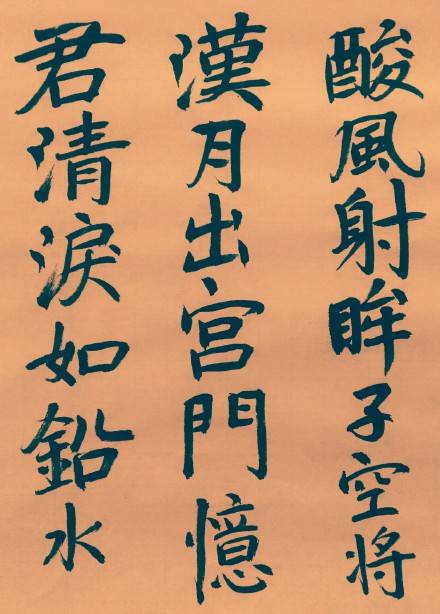 酸風射眸子空将
漢月出宮門憶
君清淚如鉛水